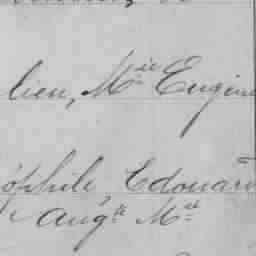 lieu, Mie Eugène
ophile, Edouard
Augte Mie